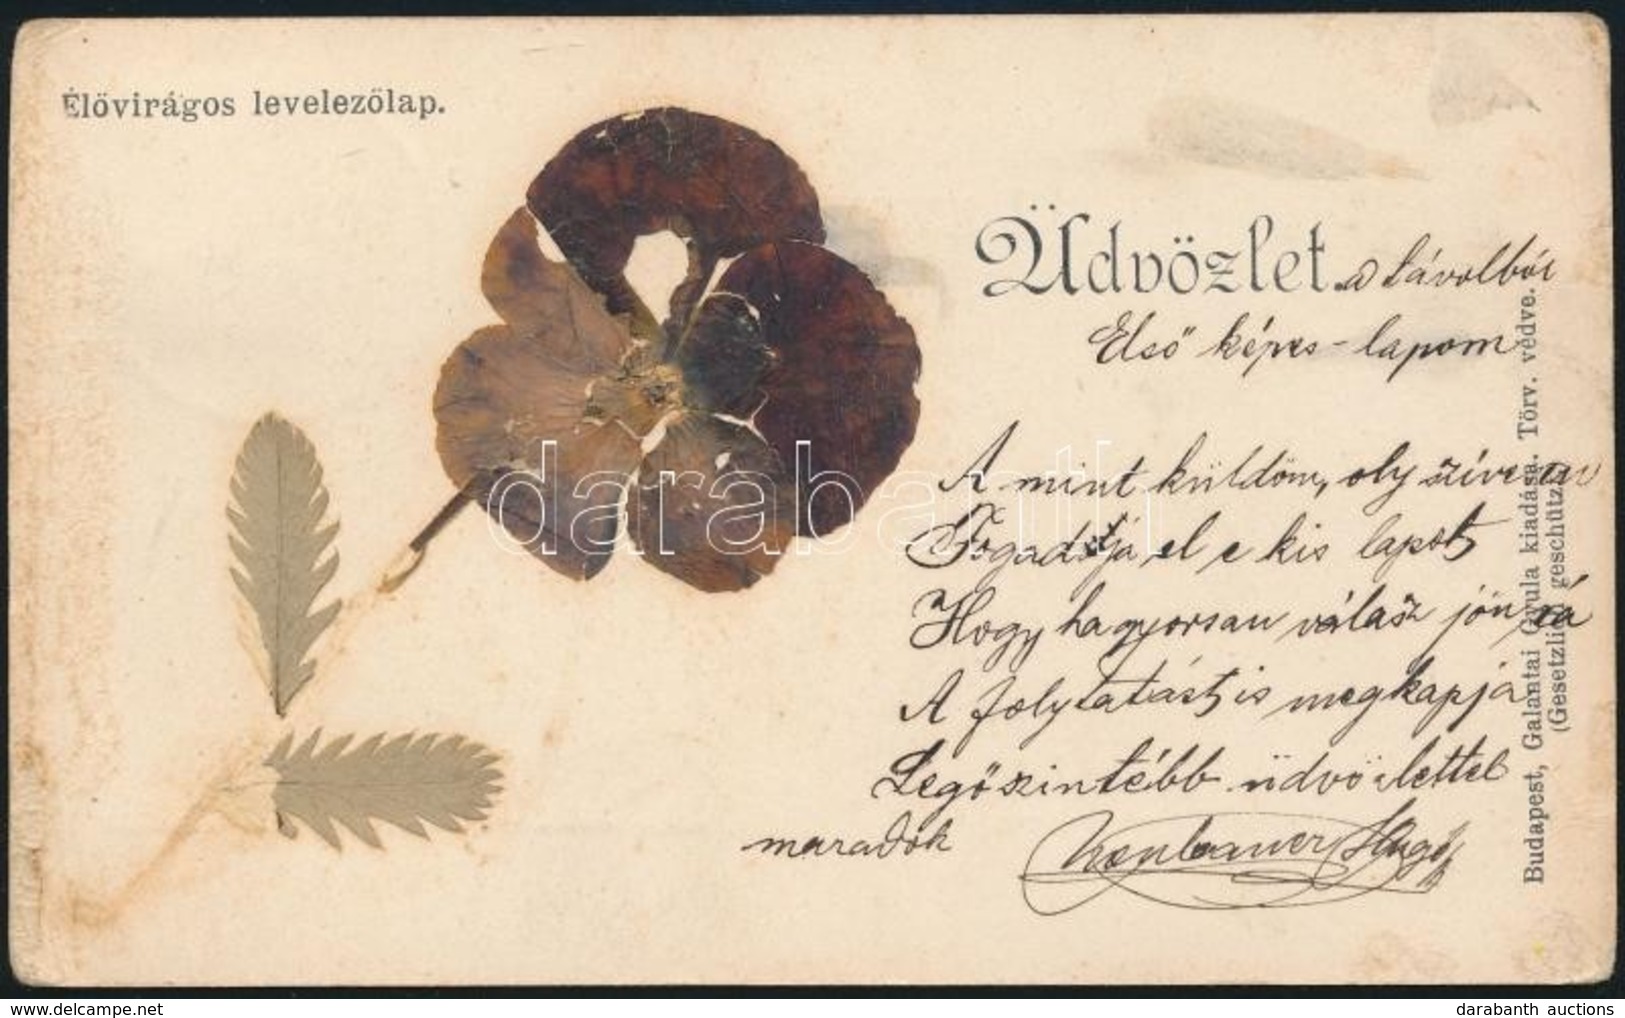 Élővirágos levelezőlap.
Üdvözlet a távolból
Első képes-lapom
A mint küldöm, oly szívesen
Fogadja el e kis lapot
Hogy hagyorsan válasz jön rá
A folytatást is megkapja
Legőszintébb üdvözlettel
maradok
Hugó
Budapest, Galantai Gyula kiadása. Törv. védve.
(Gesetzlich geschützt)
darabanth
darabanth auctions